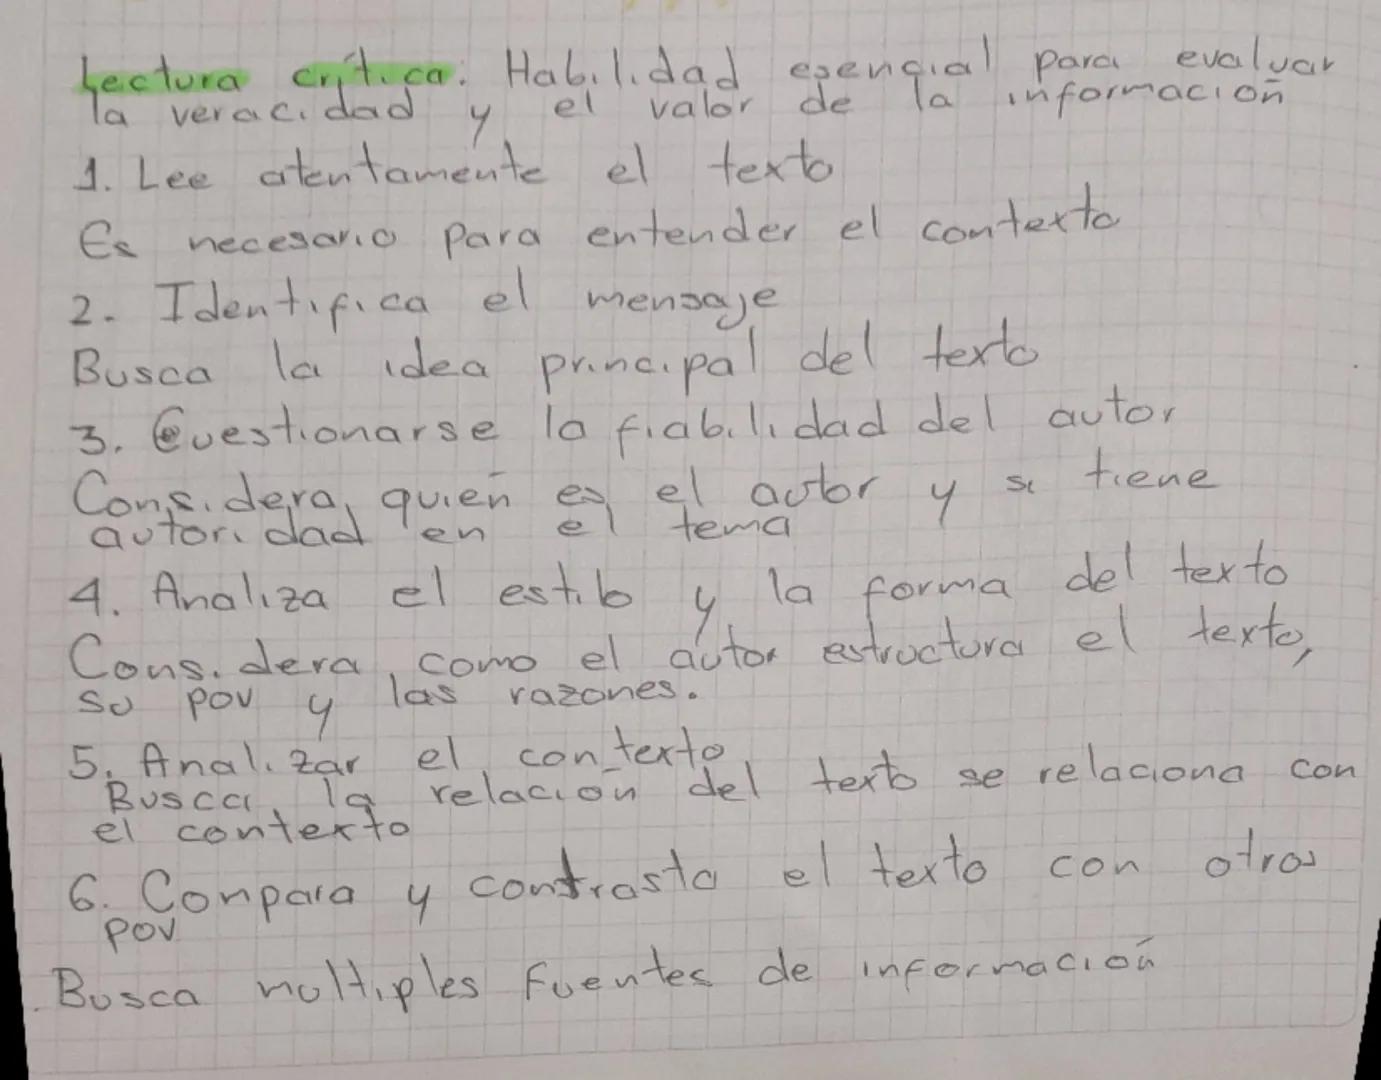 Lectura crítica: Habilidad esencial para evaluar
la veracidad y el valor de la información
1. Lee atentamente el texto
Es necesario para entender el contexto
2. Identifica el mensaje
Busca la idea principal del texto
3. Cuestionarse la fiabilidad del autor
Considera, quién es el autor y si tiene
autoridad en el tema
4. Analiza el estilo y la forma del texto
Considera como el autor estructura el texto,
su pov y las razones.
5. Analizar el contexto
Busca, la relación del texto se relaciona con
el contexto
6. Compara y contrasta el texto con otros
pov
Busca multiples fuentes de información